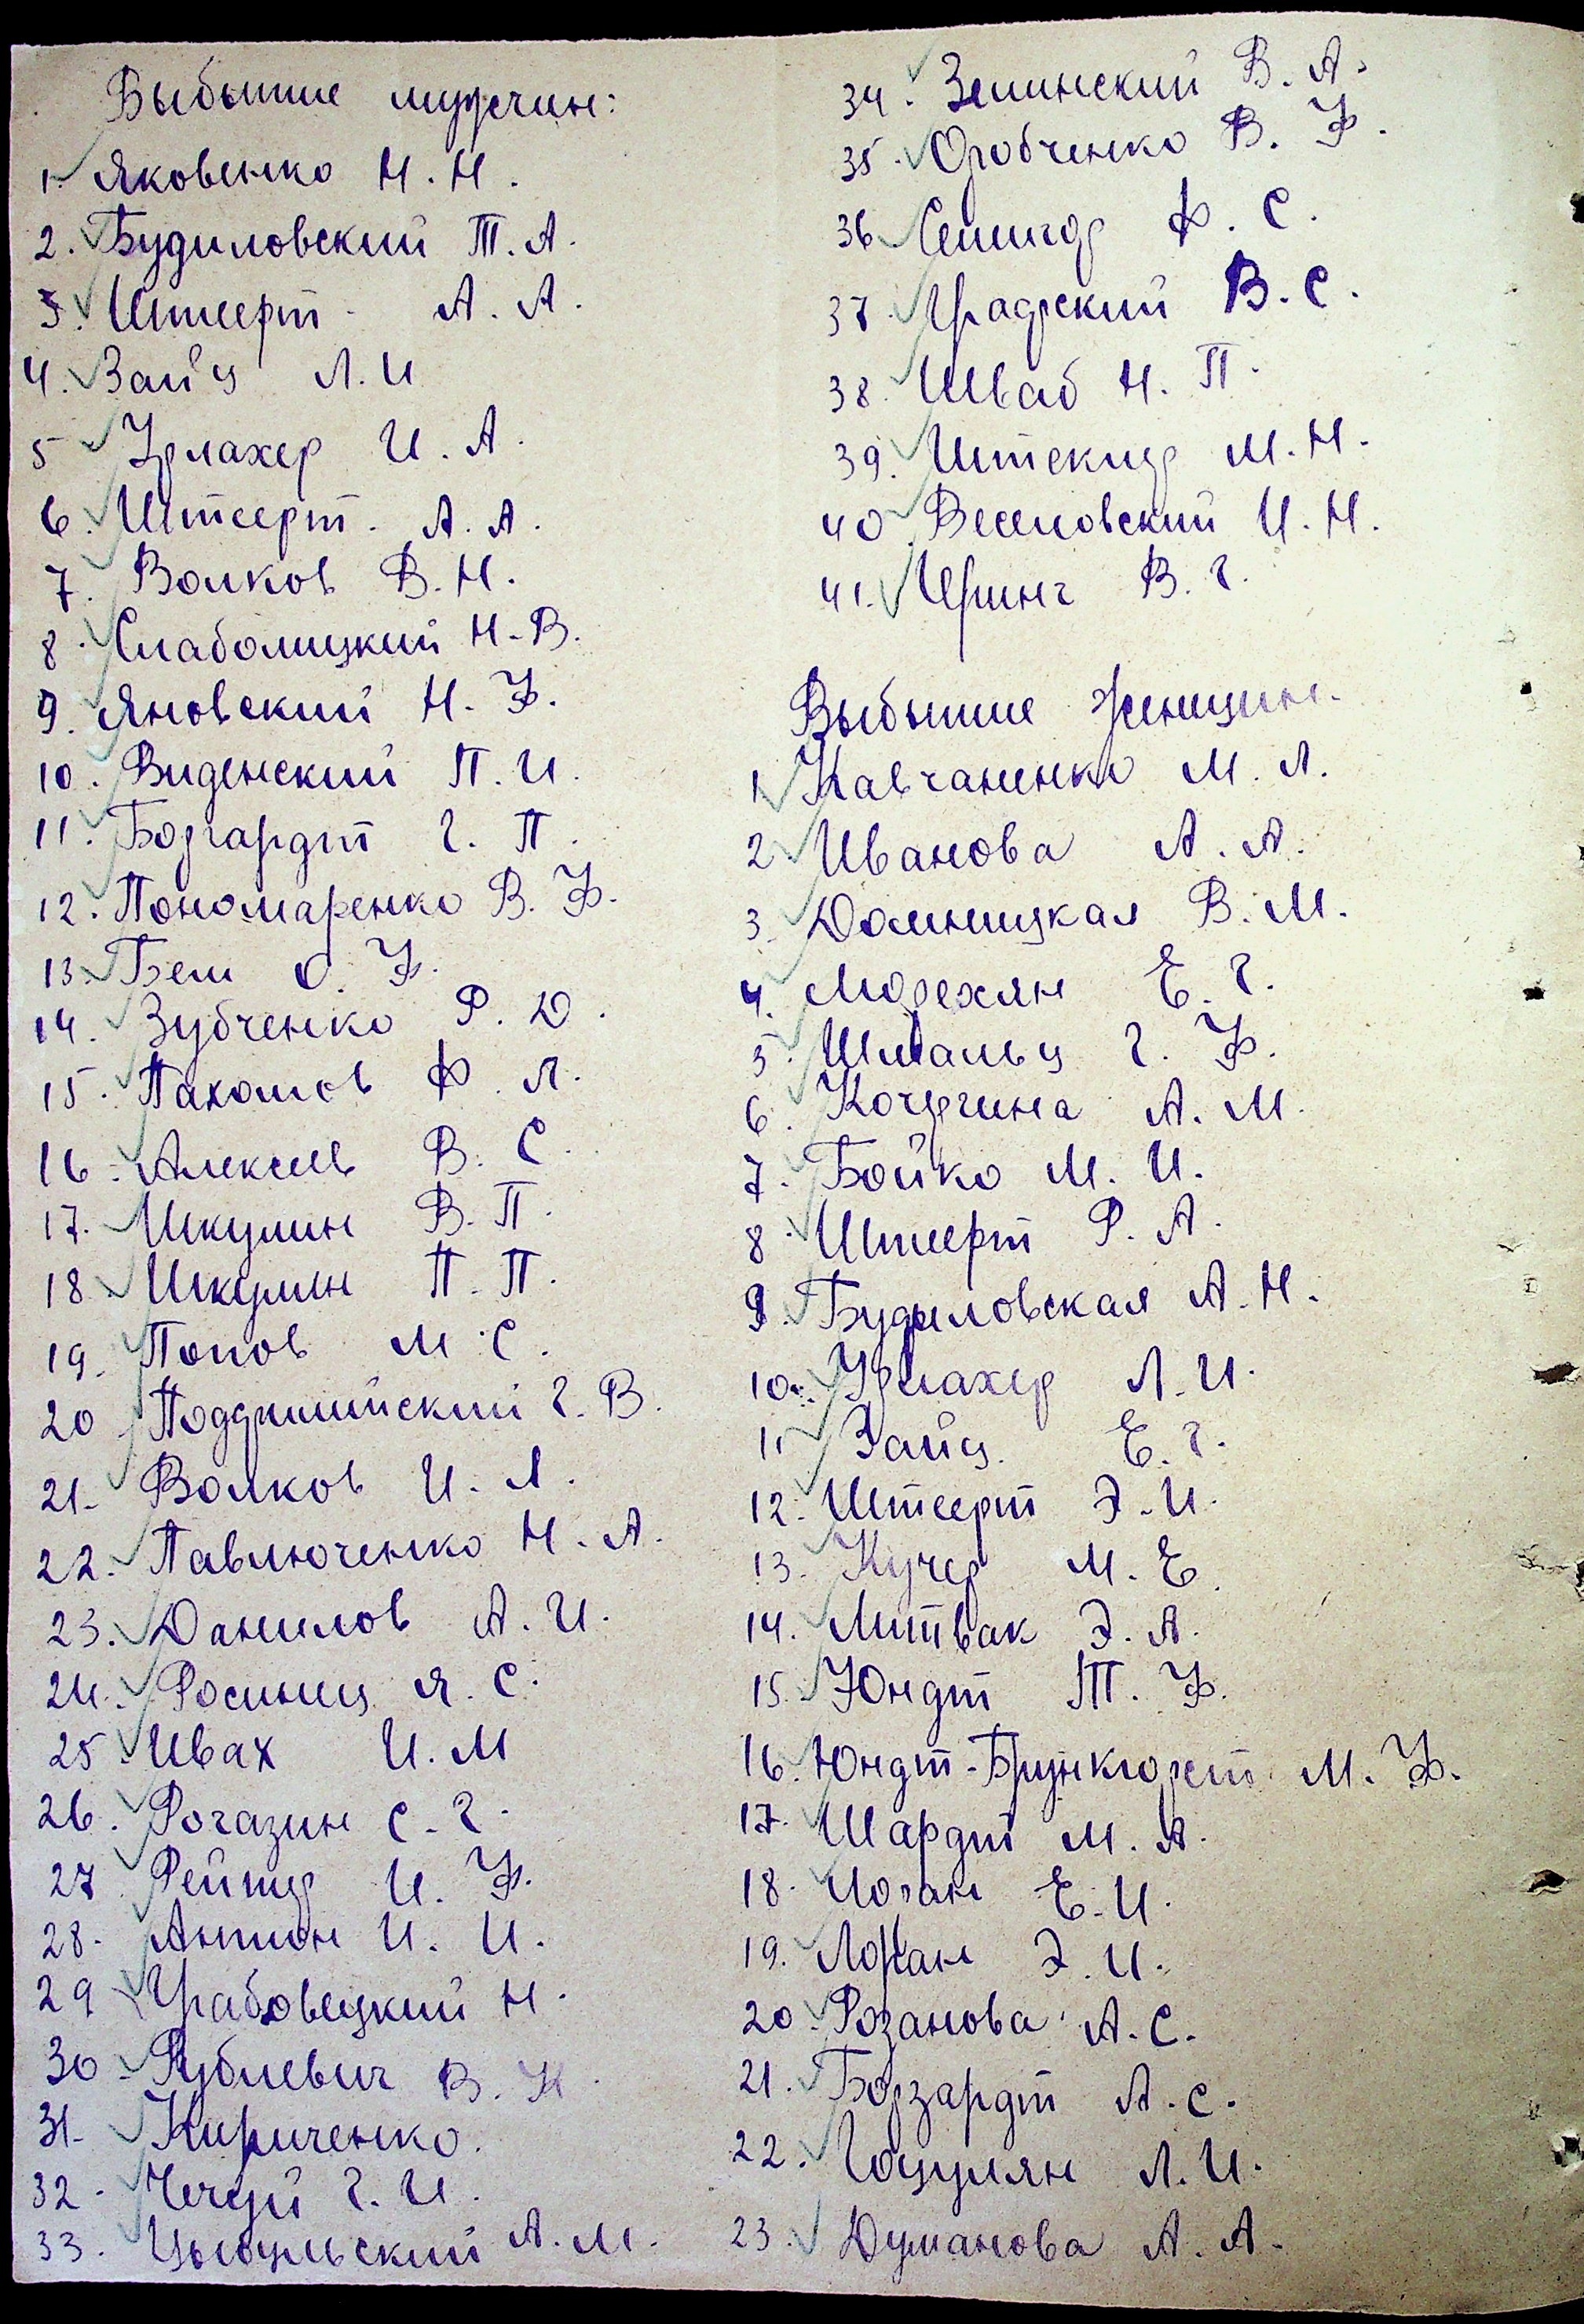 Выбывшие мужчин:
1. Яковенко Н. Н.
2. Будиловский Т. А.
3. Штеерт А. А.
4. Зайц Л. И
5 Урлахер И. А.
6. Штеерт. А. А.
7. Волков В. Н.
8. Слаболицкий Н. В.
9. Яновский Н. Ф.
10. Виденский П. И.
11. Бозгардт Г. П.
12. Пономаренко В. Ф.
13. Бем О. Ф.
14. Зубченко Р. Д.
15. Пахомов Ф. Л.
16. Алексеев В. С.
17. Шкулин В. П.
18 Шкулин П. П.
19. Попов М. С.
20 Г. В.
21. Волков И. А.
22. Павлюченко Н. А.
23. Данилов А. И.
24. Росинец Я. С.
25 Ивах И. М
26. Рогазин С. Г.
27 Рейтер И. Ф.
28. Антон И. И.
29 Грабовецкий Н.
30. Рублевич В. К.
31. Кириченко.
32. Чечуй Г. И.
33. Цымбульский А. М.
34. Зелинский В. А.
35. Оробченко В. Ф.
36 Ф. С.
37. Градский В. С.
38. Шваб Н. П.
39. Штекляр М. Н.
40. Веселовский И. Н.
41. Иринг В. Г.
Выбывшие женщин.
1. Кавчаненко М. Л.
2 Иванова А. А.
3. Домницкая В. М.
4. Морехян Е. Г.
5. Шмальц Г. Ф.
6. Кочергина А. М.
7. Бойко М. И.
8. Штеерт Р. А.
9. Будиловская А. Н.
10. Урлахер Л. И.
11 Зайц. Е. Г.
12. Штеерт Э. И.
13. Кучер М. Е.
14. Литвак Э. А.
15. Юндт Т. Ф.
16. Юндт-Брункгорст М. Ф.
17. Шардт М. А.
18. Иоган Е. И.
19. Лоран Э. И.
20. Розанова А. С.
21. Бозгардт А. С.
22. Гоцулян Л. И.
23. Думанова А. А.